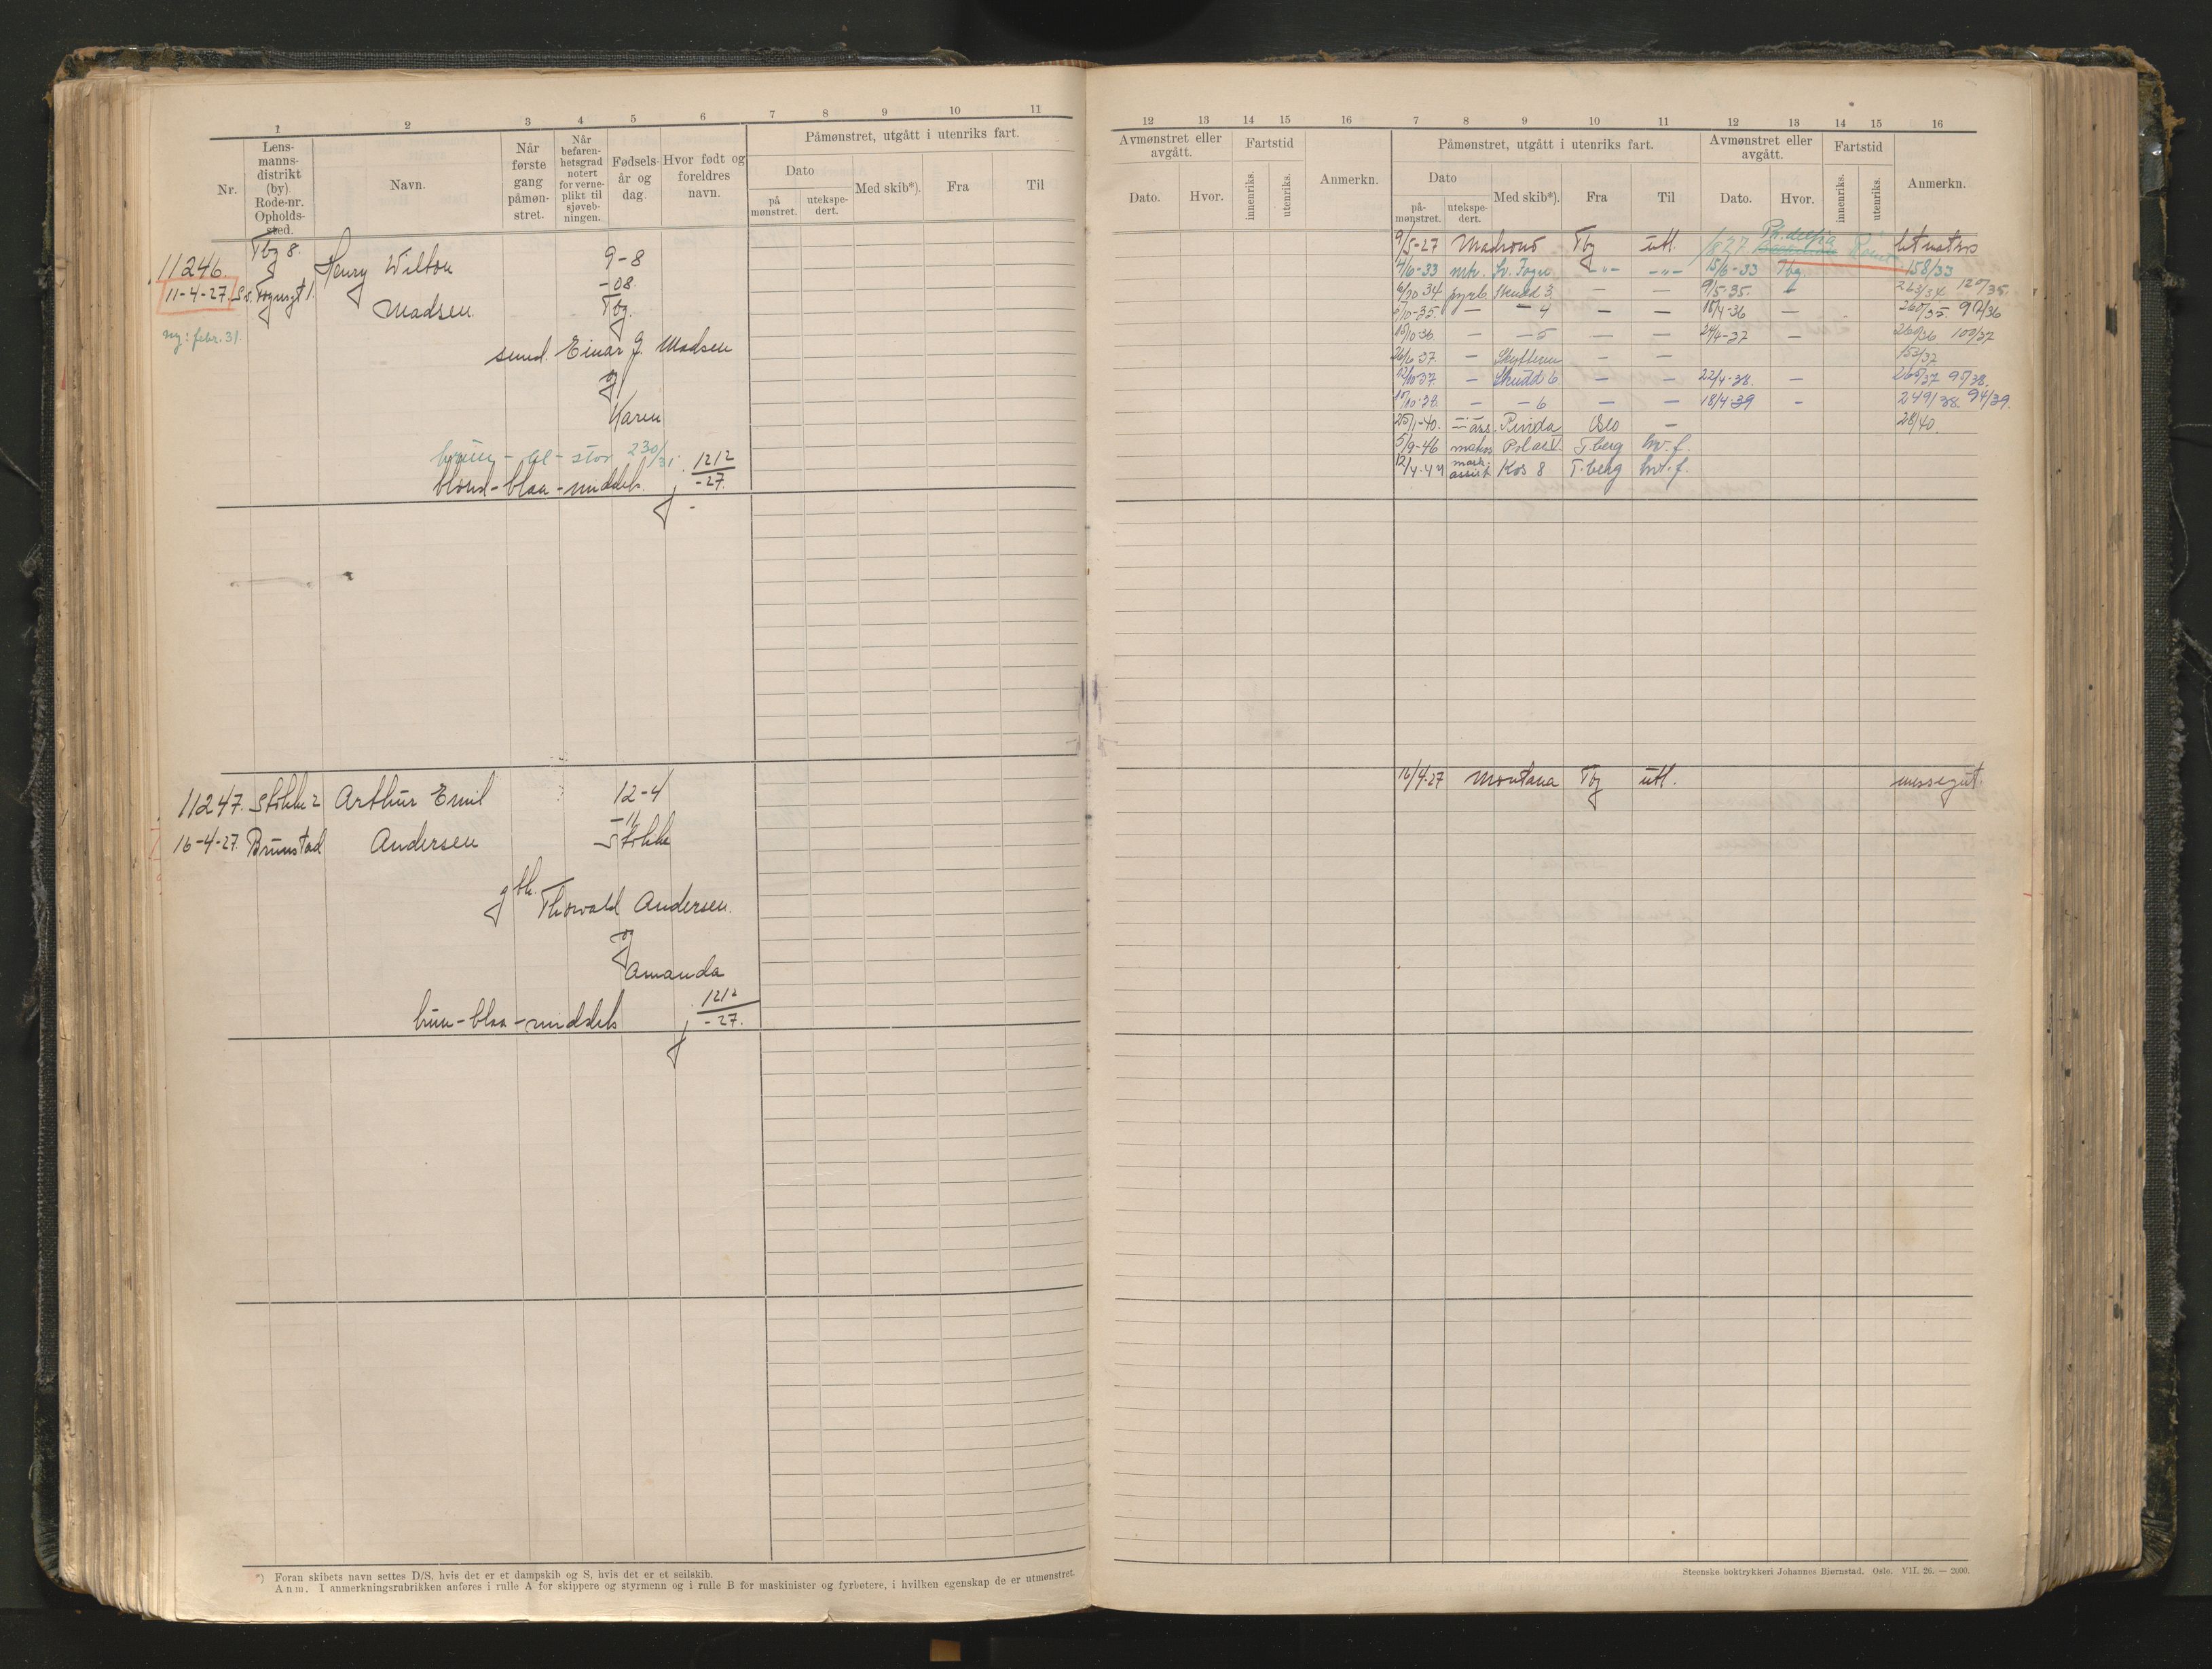 1 2 3 4 5 6 7 8 9 10 11
Nr.
Lens-
manns-
distrikt
(by)
Rode-nr.
Opholds-
sted.
Navn.
Når
første
gang
påmøn-
stret.
Når
befaren-
hetsgrad
notert
for verne-
plikt til
sjøveb-
ningen.
Fødsels-
år og
dag.
Hvor født og
foreldres
navn.
Påmønstret, utgått i utenriks fart.
Dato
på
mønstret.
utekspe-
dert.
Med skib*).
Fra
Til
11246. Tbg 8. Henry Wilton 9-8
11-4-27. Madsen. -08.
Tbg.
ny: febr. 31.
Einar J. Madsen
og
Karen
brun - bl - stor 230/31.
blond-blaa-middels. j. 1212/-27.
11247. Stokke 2 Arthur Emil 12-4
16-4-27. Brunstad Andersen -11
Stokke
gbr. Thorvald Andersen.
og
Amanda
brun-blaa-middels j. 1212/-27.
*) Foran skibets navn settes D/S, hvis det er et dampskib og S, hvis det er et seilskib.
Anm. I anmerkningsrubrikken anføres i rulle A for skippere og styrmenn og i rulle B for maskinister og fyrbøtere, i hvilken egenskap de er utmønstret.
12 13 14 15 16 7 8 9 10 11 12 13 14 15 16
Avmønstret eller
avgått.
Dato.
Hvor.
Fartstid
innenriks.
utenriks.
Anmerkn.
Påmønstret, utgått i utenriks fart.
Dato
på-
mønstret.
utekspe-
dert.
Med skib*).
Fra
Til
Avmønstret eller
avgått.
Dato.
Hvor.
Fartstid
innenriks.
utenriks.
Anmerkn.
9/5-27 Madrono Tbg utl.
7/6-33 mtr. Sv. Foyn -"- -"- 15/6-33 Tbg 158/33
6/10 34 fyrb. Skudd 3. - - 9/5-35. - 263/34 120/35.
- - 4 - - 18/4-36 -
15/10 36. - - 5 - - 24/4-37 - 100/37
26/6 37. - Skytteren - - 153/37
12/10 37 - Skudd 6. - - 22/4-38. - 265/37 95/38.
- - 6 - - 18/4-39 - 249/38. 94/39.
25/1-40. ass. Pinda Oslo - 28/40.
5/9-46 T.berg hv.f.
12/4-47 mask. assist Kos 8 T.berg hv.f.
16/4-27 Montana Tbg utl. messegut.
Steenske boktrykkeri Johannes Bjørnstad. Oslo. VII. 26. — 2000.